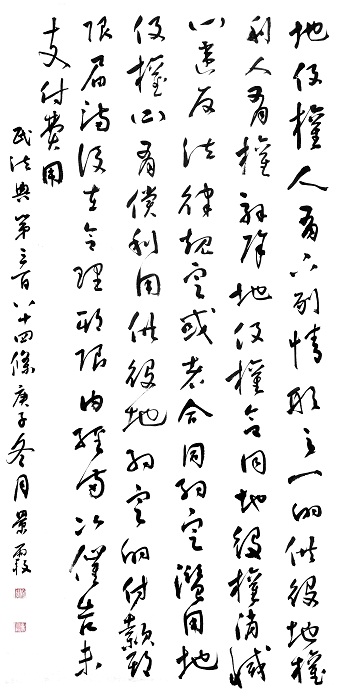 地役權人有下列情形之一的供役地權
利人有權解除地役權合同地役權消滅
(一)違反法律規定或者合同約定濫用地
役權(二)有償利用供役地約定的付款期
限屆滿後在合理期限內經兩次催告未
支付費用
民法典第三百八十四條庚子冬月景